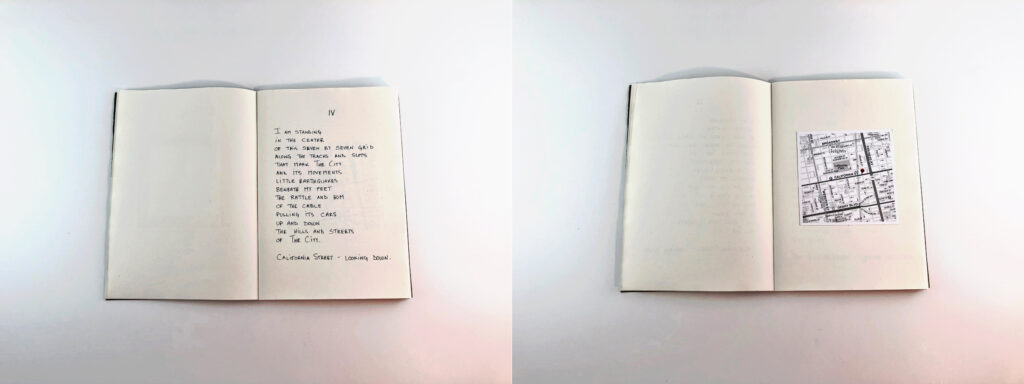 IV
I AM STANDING
IN THE CENTER
OF THIS SEVEN BY SEVEN GRID
ALONG THE TRACKS AND SLOTS
THAT MARK THE CITY
AND ITS MOVEMENTS.
LITTLE EARTHQUAKES
BENEATH MY FEET
THE RATTLE AND HUM
OF THE CABLE
PULLING ITS CARS
UP AND DOWN
THE HILLS AND STREETS
OF THE CITY.
CALIFORNIA STREET - LOOKING DOWN.
CALIFORNIA ST
GEARY BLVD